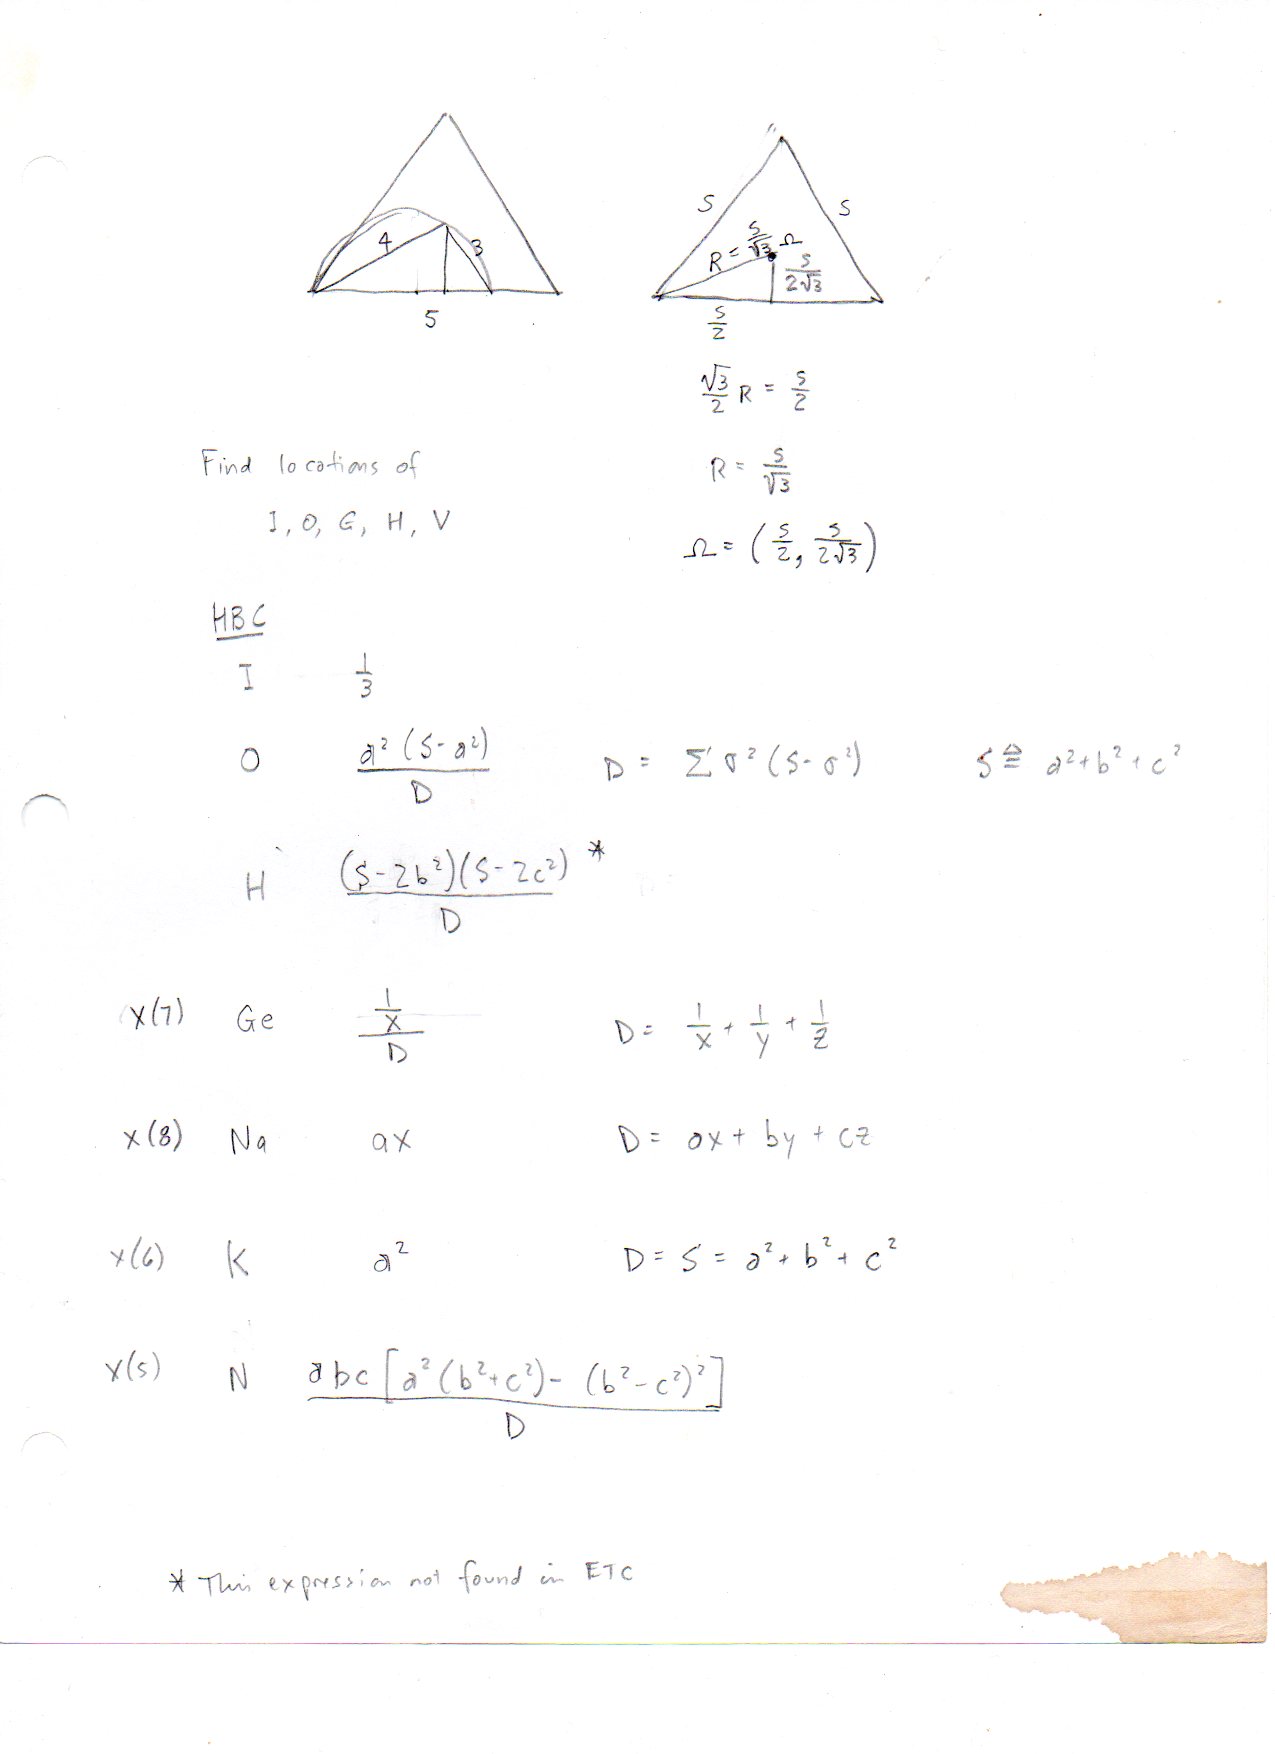 4 3
5
S S
R = S/√3 Ω
S/2√3
S/2
√3/2 R = S/2
Find locations of
R = S/√3
I, O, G, H, V
Ω = (S/2, S/2√3)
HBC
I 1/3
O a²(S-a²)/D D = Σσ²(S-σ²) S ≙ a²+b²+c²
H (S-2b²)(S-2c²)/D *
X(7) Ge 1/x/D D = 1/x + 1/y + 1/z
X(8) Na ax D = ax + by + cz
X(6) K a² D = S = a² + b² + c²
X(5) N abc[a²(b²+c²) - (b²-c²)²]/D
* This expression not found in ETC